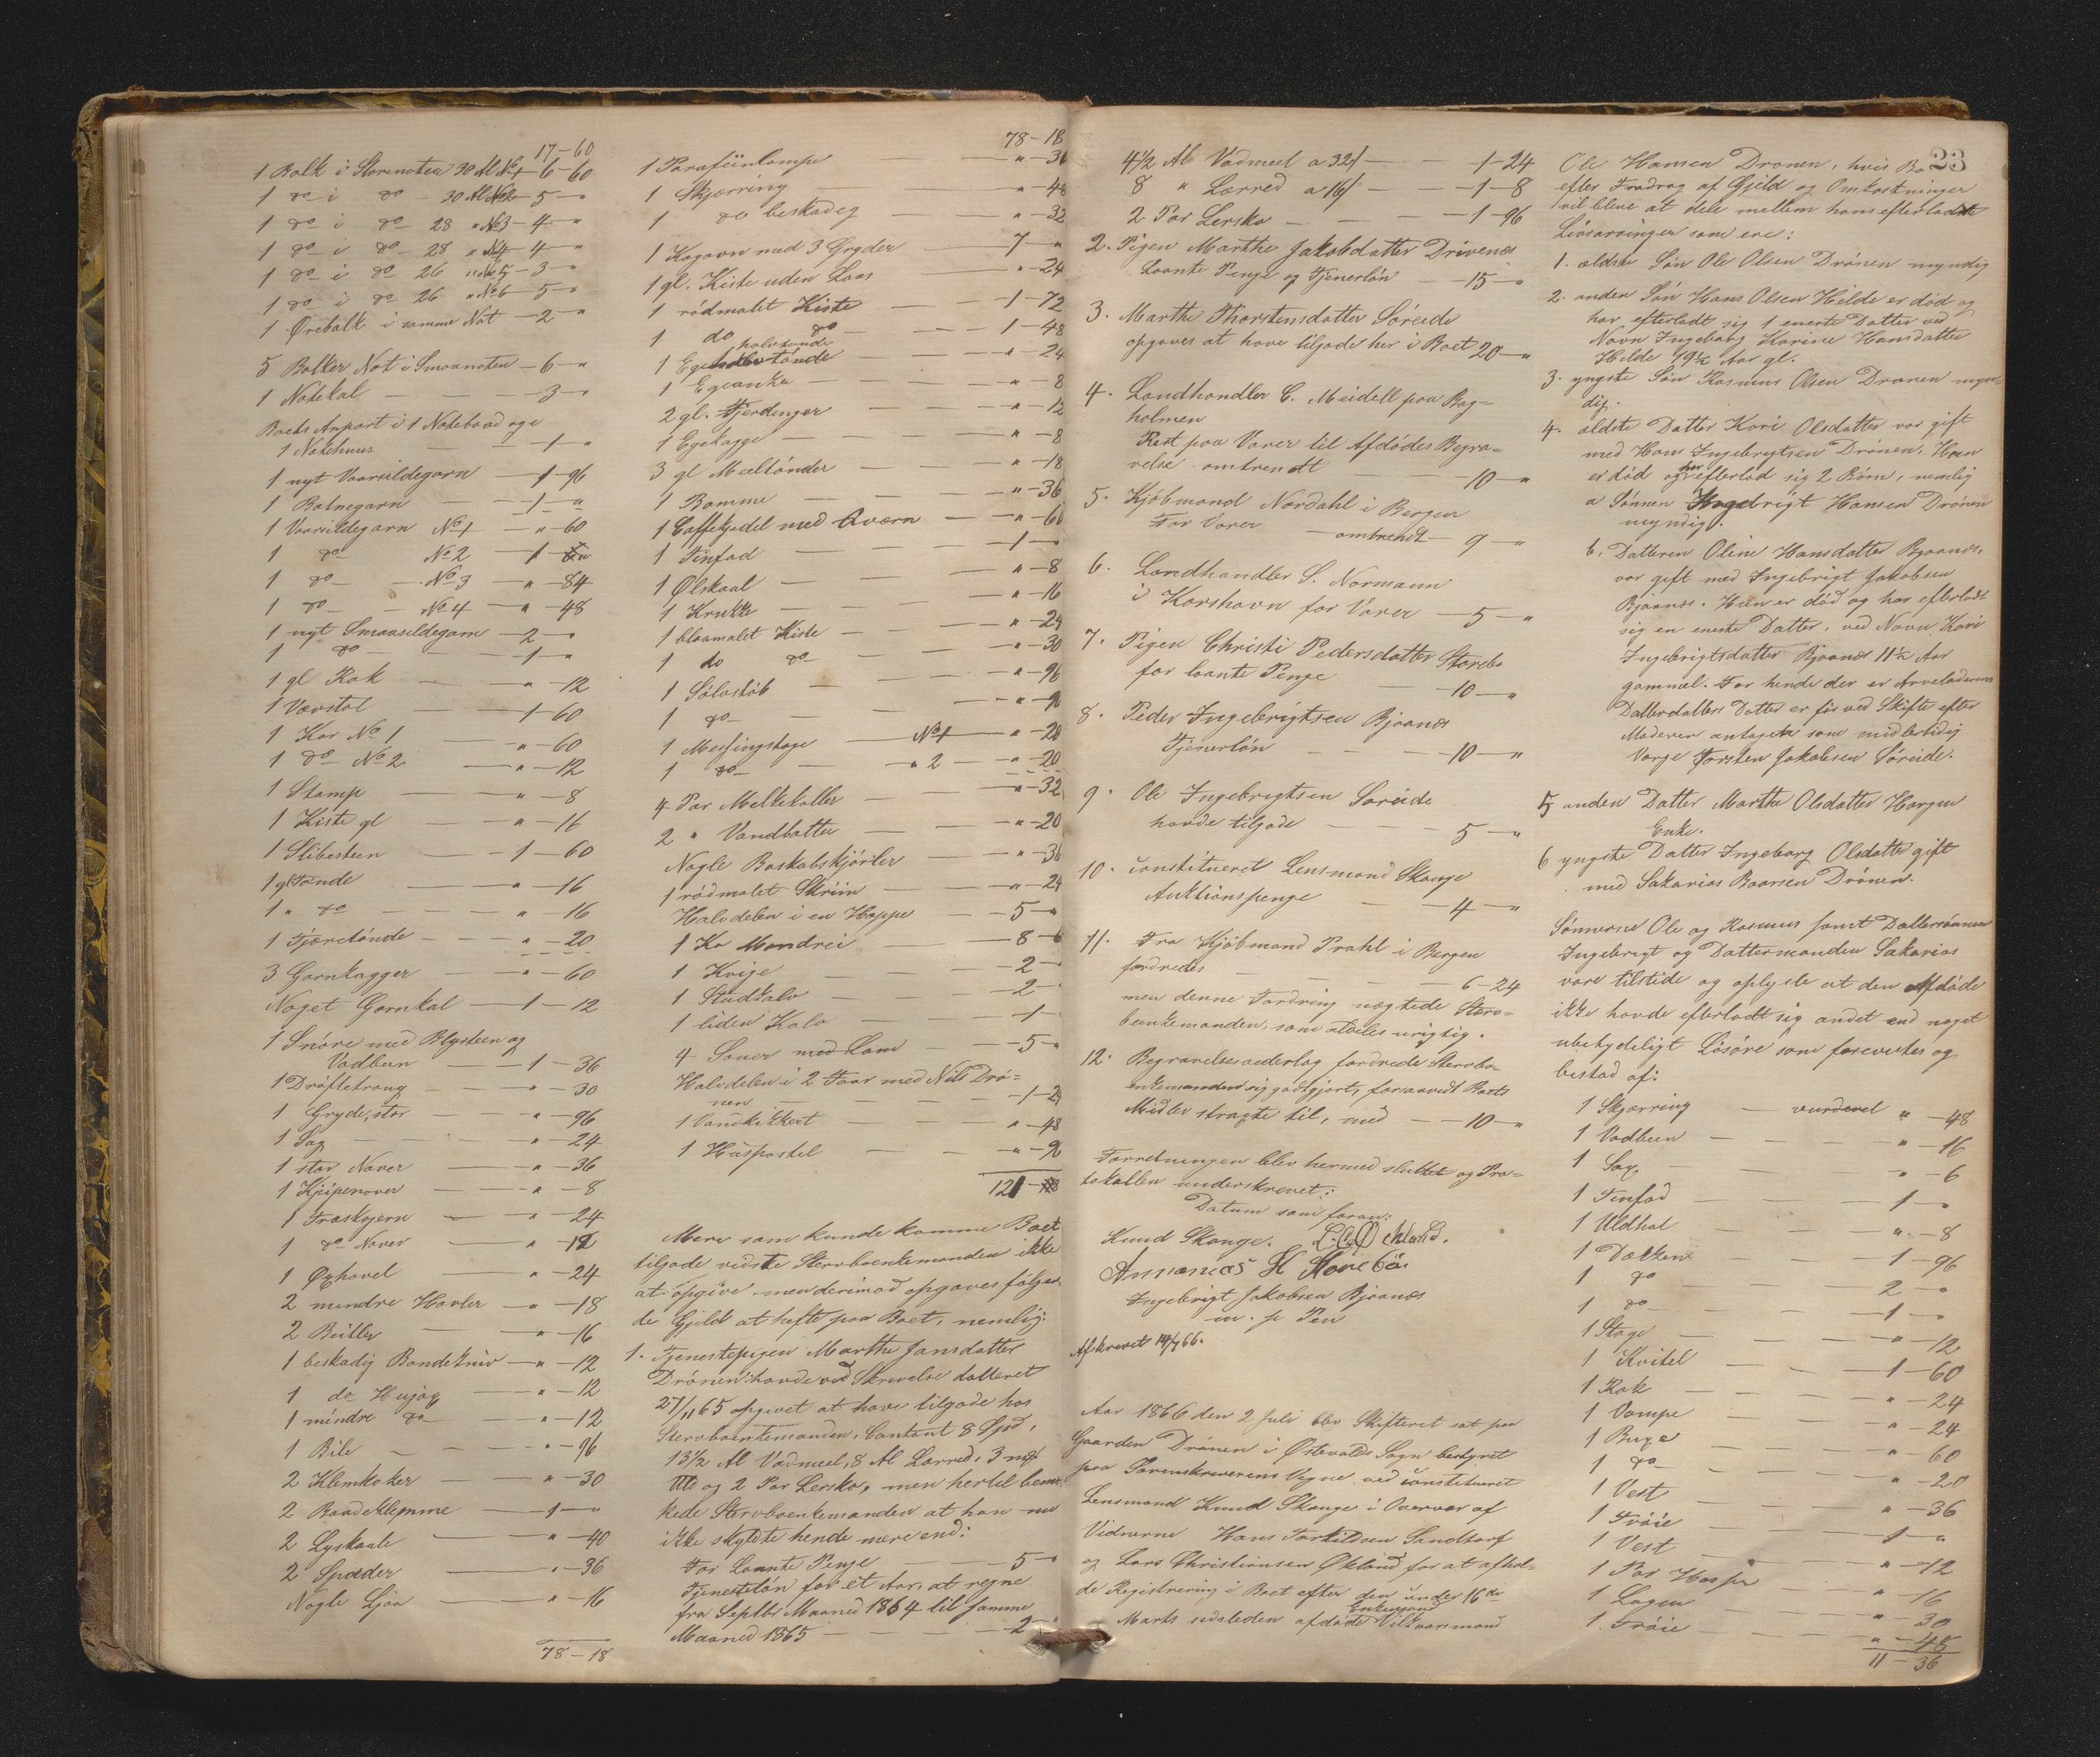 17-60
1 Balk i Storenoten 30 Al No 1 - 6-60
1 do i do - 30 Al No 2 - 5 - "
1 do i do 28 " No 3 - 4 - "
1 do i do 28 " No 4 - 4 - "
1 do i do 26 " No 5 - 3 - "
1 do i do 26 " No 6 - 5 - "
1 Ørebalk i samme Not - 2 - "
5 Balker Not i Smaanoten - 6 - "
1 Notekal - 3 - "
Boets Anpart i 1 Notebaad og
1 Notehuus - 1 - "
1 nyt Vaarsildegarn - 1 - 96
1 Botnegarn - 1 - "
1 Vaarsildegarn No 1 - " - 60
1 do No 2 - 1 - "
1 do No 3 - " - 84
1 do No 4 - " - 48
1 nyt Smaasildegarn - 2 - "
1 do - 1 - "
1 gl Rok - " - 12
1 Vævstol - 1 - 60
1 Kar No 1 - " - 60
1 do No 2 - " - 12
1 Stamp - " - 8
1 Kiste gl - " - 16
1 Slibesteen - 1 - 60
1 gl Tønde - " - 16
1 " do - " - 16
1 Tjæretønde - " - 20
3 Garnkagger - " - 60
Noget Garnkal - 1 - 12
1 Snøre med Blysteen og
Vadbeen - 1 - 36
1 Drøftetroug - " - 30
1 Gryde, stor - " - 96
1 Sag - " - 24
1 stor Naver - " - 36
1 Kjipenaver - " - 8
1 Træskjern - " - 24
1 do Naver - " - 12
1 Øxhovel - " - 24
2 mindre Hovler - " - 18
2 Beitler - " - 16
1 beskadig Bandekniv - " - 12
1 do Hujog - " - 12
1 mindre do - " - 12
1 Bile - " - 96
2 Klemkaker - " - 30
2 Baadeklemme - 1 - "
2 Lyskaale - " - 40
2 Spader - " - 36
Nogle Ljaa - " - 16
78-18
78-18
1 Parafiinlampe - " - 36
1 Skjærring - " - 48
1 do beskadig - " - 32
1 Kogovn med 3 Gryder - 7 - "
1 gl. Kiste uden Laas - " - 24
1 rødmalet Kiste - 1 - 72
1 do do - 1 - 48
halvtønde
1 Ege - " - 24
1 Egeanker - " - 8
2 gl. Fjerdinger - " - 12
1 Egekagge - " - 8
3 gl Meeltønder - " - 18
1 Bomme - " - 36
1 Caffekjedel med Qværn - " - 60
1 Tinfad - 1 - "
1 Ølskaal - " - 8
1 Krukke - " - 16
1 blaamalet Kiste - " - 24
1 do do - " - 30
1 Sølvstøb - " - 96
1 do - " - 96
1 Messingstage No 1 - " - 20
1 do " 2 - " - 20
4 Par Melkekoller - " - 32
2 " Vandbøtter - " - 20
Nogle Boskabskjørler - " - 36
1 rødmalet Skriin - " - 24
Halvdelen i en Hoppe - 5 - "
1 Ko Mandrei - 8 - "
1 Kvige - 2 - "
1 Studkalv - 2 - "
1 liden Kalv - 1 - "
4 Sauer med Lam - 5 - "
Halvdelen i 2 Faar med Nils Drø=
nen - 1 - 24
1 Vandkikkert - " - 48
1 Huspostil - " - 96
121 -
Mere som kunde komme Boet
tilgode vidste Stervboenkemanden ikke
at opgive, men derimod opgaves følgen=
de Gjeld at hefte paa Boet, nemlig:
1. Tjenestepigen Marthe Jansdatter
Drønen havde ved Skrivelse datteret
27/11 65 opgivet at have tilgode hos
Stervboenkemanden, Contant 8 Spd,
13½ Al Vadmeel, 8 Al Lærred, 3 mk
Uld og 2 Par Lersko, men hertil bemær=
kede Stervboenkemanden at han nu
ikke skyldte hende mere end:
For Laante Penge - 5 - "
Tjenesteløn for et Aar, at regne
fra Septbr Maaned 1864 til samme
Maaned 1865 - 2 - "
4½ Al Vadmeel a 32 s - 1 - 24
8 " Lærred a 16 s - 1 - 8
2 Par Lersko - 1 - 96
2. Pigen Marthe Jakobsdatter Drivenes
Laante Penge og Tjenerløn - 15 - "
3. Marthe Thorstensdatter Søreide
opgaves at have tilgode her i Boet 20 - "
4. Landhandler C. Meidell paa Bag=
holmen
Rest paa Varer til Afdødes Begra=
velse omtrendt - 10 - "
5. Kjøbmand Nordahl i Bergen
For Varer - omtrendt - 9 - "
6. Landhandler S. Normann
i Korshavn for Varer - 5 - "
7. Pigen Christi Pedersdatter Storebø
for laante Penge - 10 - "
8. Peder Ingebrigtsen Bjaanes
Tjenerløn - 10 - "
9. Ole Ingebrigtsen Søreide
havde tilgode - 5 - "
10. constitueret Lensmand Skauge
Auktionspenge - 4 - "
11. Fra Kjøbmand Prahl i Bergen
fordredes - 6 - 24
men denne Fordring nægtede Sterv=
boenkemanden, som aldeles urigtig.
12. Begravelsesvederlag fordrede Stervbo=
enkemanden sig godtgjort, forsaavidt Boets
Midler stragte til, med - 10 - "
Forretningen blev hermed sluttet og Pro=
tokollen underskrevet:
Datum som foran:
Knud Skauge. L. C. Økland.
Annanias H Storebö.
Ingebrigt Jakobsen Bjaanes
m. p. Pen
Afskrevet 14/7 66.
Aar 1866 den 2 Juli blev Skifteret sat paa
Gaarden Drønen i Østevolds Sogn bestyret
paa Sorenskriverens Vegne ved constitueret
Lensmand Knud Skauge i Overvær af
Vidnerne Hans Torkildsen Sandtorf
og Lars Christiansen Økland for at afhol=
de Registrering i Boet efter den under 16de
Marts sidstleden afdøde Enkemand Vilkaarsmand
23
Ole Hansen Drønen, hvis Bo
efter Fradrag af Gjeld og Omkostninger
vil blive at dele mellem hans efterladte
Livsarvinger som ere:
1. ældste Søn Ole Olsen Drønen myndig
2. anden Søn Hans Olsen Hilde er død og
har efterladt sig 1 eneste Datter ved
Navn Ingeborg Karine Hansdatter
Hilde 19½ Aar gl.
3. yngste Søn Rasmus Olsen Drønen myn=
dig.
4. ældste Datter Kari Olsdatter var gift
med Hans Ingebrigtsen Drønen. Hun
er død og har efterlad sig 2 Børn, nemlig
a Sønnen Ingebrigt Hansen Drønen
myndig.
b. Datteren Oline Hansdatter Bjaanes,
var gift med Ingebrigt Jakobsen
Bjaanes. Hun er død og har efterladt
sig en eneste Datter, ved Navn Kari
Ingebrigtsdatter Bjaanes 11½ Aar
gammel. For hende der er Arveladerens
Datterdatters Datter er før ved Skifte efter
Moderen antagen som midlertidig
Værge Torsten Jakobsen Søreide.
5 anden Datter Marthe Olsdatter Horgen
Enke.
6 yngste Datter Ingeborg Olsdatter gift
med Sakarias Baarsen Drønen.
Sønnerne Ole og Rasmus samt Dattersønnen
Ingebrigt og Dattermanden Sakarias
vare tilstede og oplyste at den Afdøde
ikke havde efterladt sig andet end noget
ubetydeligt Løsøre som forevistes og
bestod af:
1 Skjærring - vurderet " - 48
1 Vadbeen - " - 16
1 Sax - " - 6
1 Tinfad - 1 - "
1 Uldhal - " - 8
1 Dækken - 1 - 96
1 do - 2 - "
1 do - 1 - "
1 Stage - " - 12
1 Kvitel - 1 - 60
1 Rok - " - 24
1 Vampe - " - 24
1 Buxe - " - 60
1 do - " - 20
1 Vest - " - 36
1 Trøie - 1 - "
1 Vest - " - 12
1 Par Hoser - " - 16
1 Lagen - " - 30
1 Trøie - " - 48
11 - 36